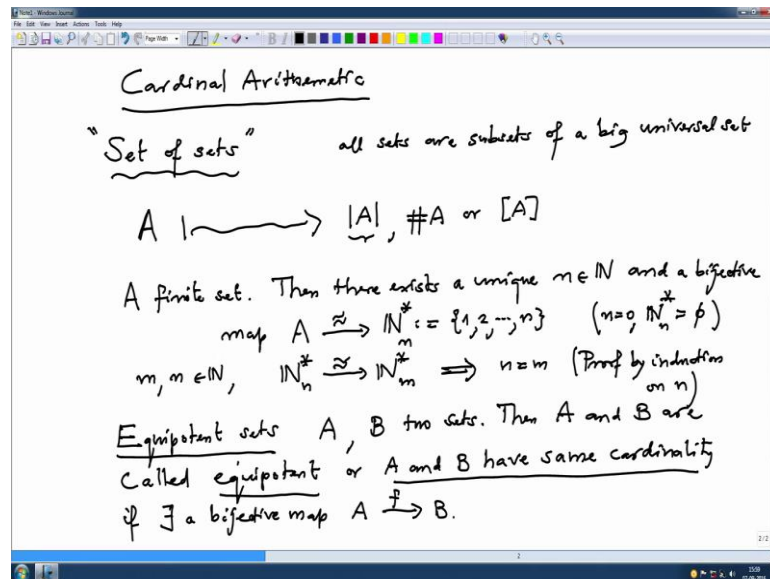 Note1 - Windows Journal
File Edit View Insert Actions Tools Help
Page Width
Cardinal Arithmetic
"Set of sets" all sets are subsets of a big universal set
A |⟿ |A|, #A or [A]
A finite set. Then there exists a unique n ∈ ℕ and a bijective
map A ≈→ ℕ*ₙ := {1,2,...,n} (n=0, ℕ*ₙ = ϕ)
m, n ∈ ℕ, ℕ*ₙ ≈→ ℕ*ₘ ⟹ n=m (Proof by induction
on n)
Equipotent sets A, B two sets. Then A and B are
called equipotent or A and B have same cardinality
if ∃ a bijective map A f→ B.
2/2
2
15:59